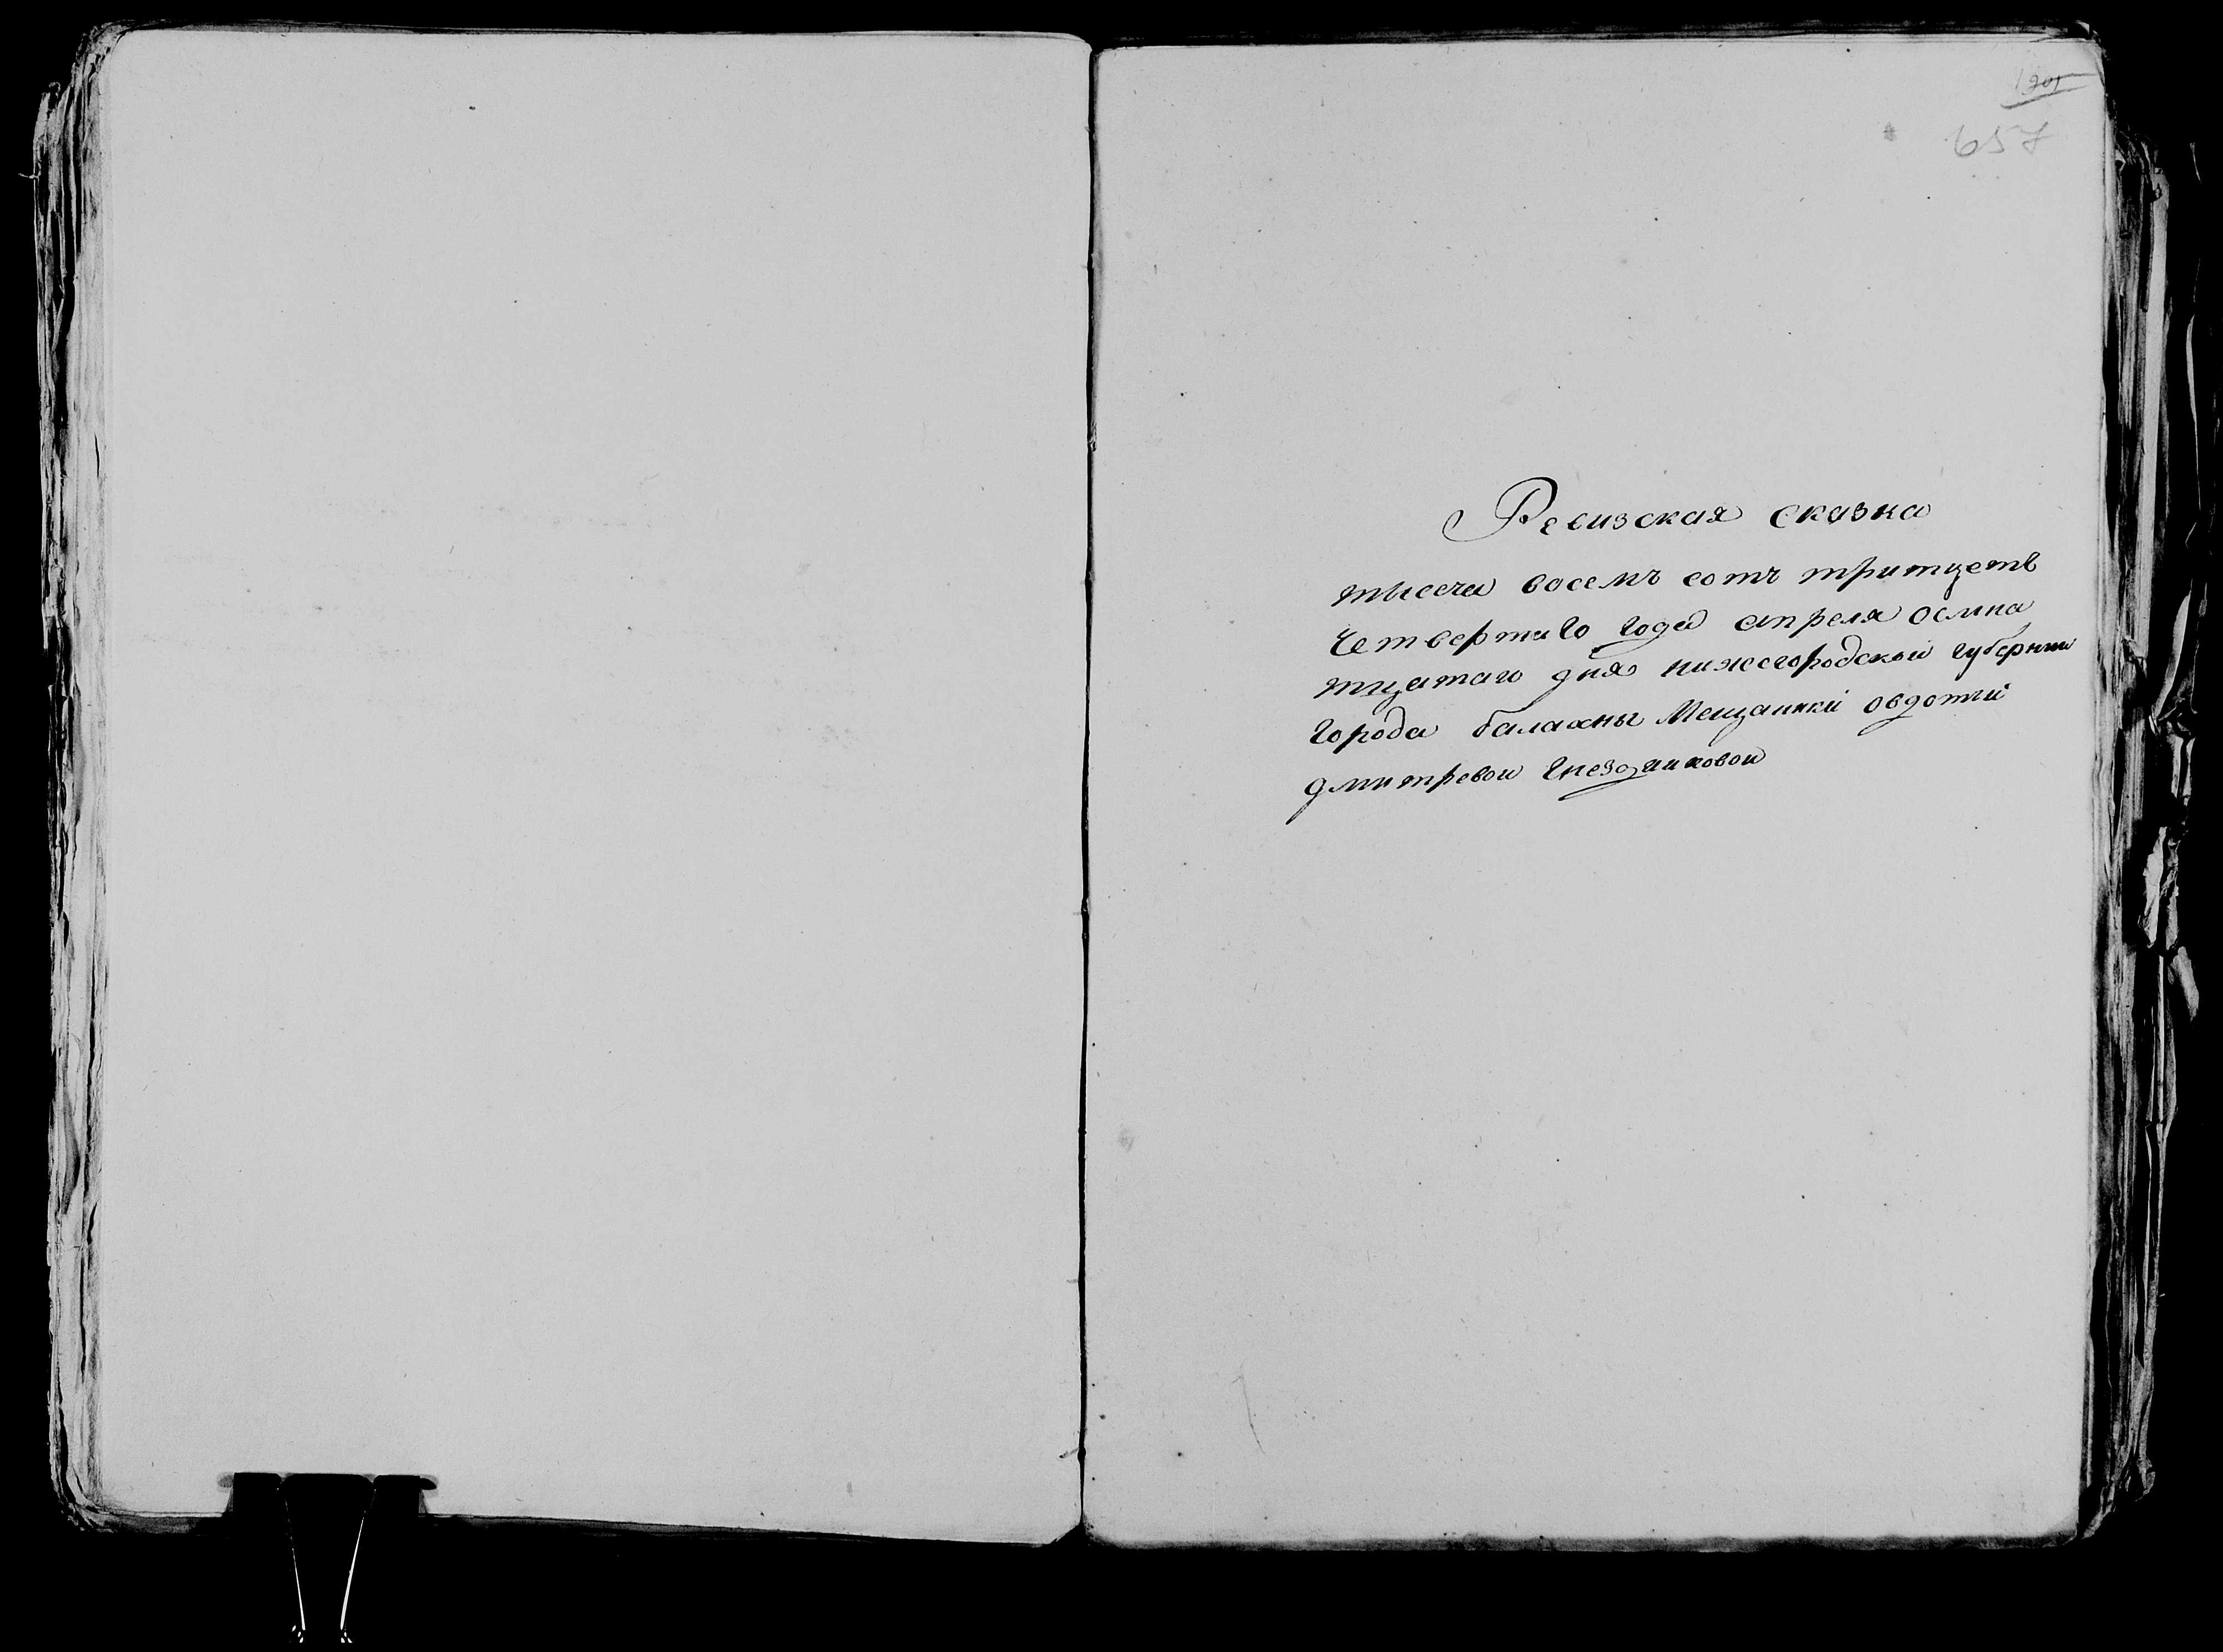 657
Ревизская сказка
тысеча восемъ сотъ тритцеть
Четвертаго года апреля осмна
тцатаго дня нижегородской губернии
Города балахны Мещанки овдотьи
дмитревой Гнездчиковой